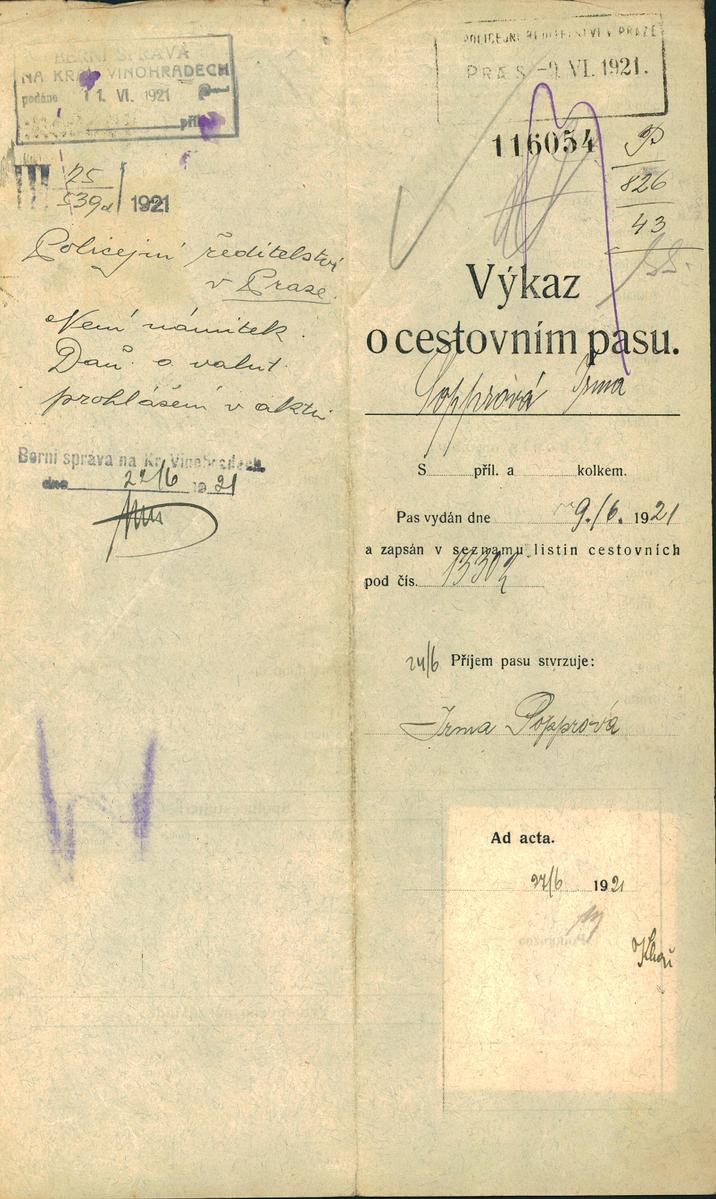 BERNÍ SPRÁVA
NA KR. VINOHRADECH
podáno 11. VI. 1921
příl.
III 25
539d / 1921
Policejní ředitelství
v Praze.
Není námitek.
Daň. o valut.
prohlášení v aktu
Berní správa na Kr. Vinohradech.
dne 22/6 1921
POLICEJNÍ ŘEDITELSTVÍ V PRAZE
PRAES -9. VI. 1921.
116054
P
826
43
Výkaz
o cestovním pasu.
Popprová Irma
S příl. a kolkem.
Pas vydán dne 9./6. 1921
a zapsán v seznamu listin cestovních
pod čís. 13302
24/6 Příjem pasu stvrzuje:
Irma Popprová
Ad acta.
27/6 1921